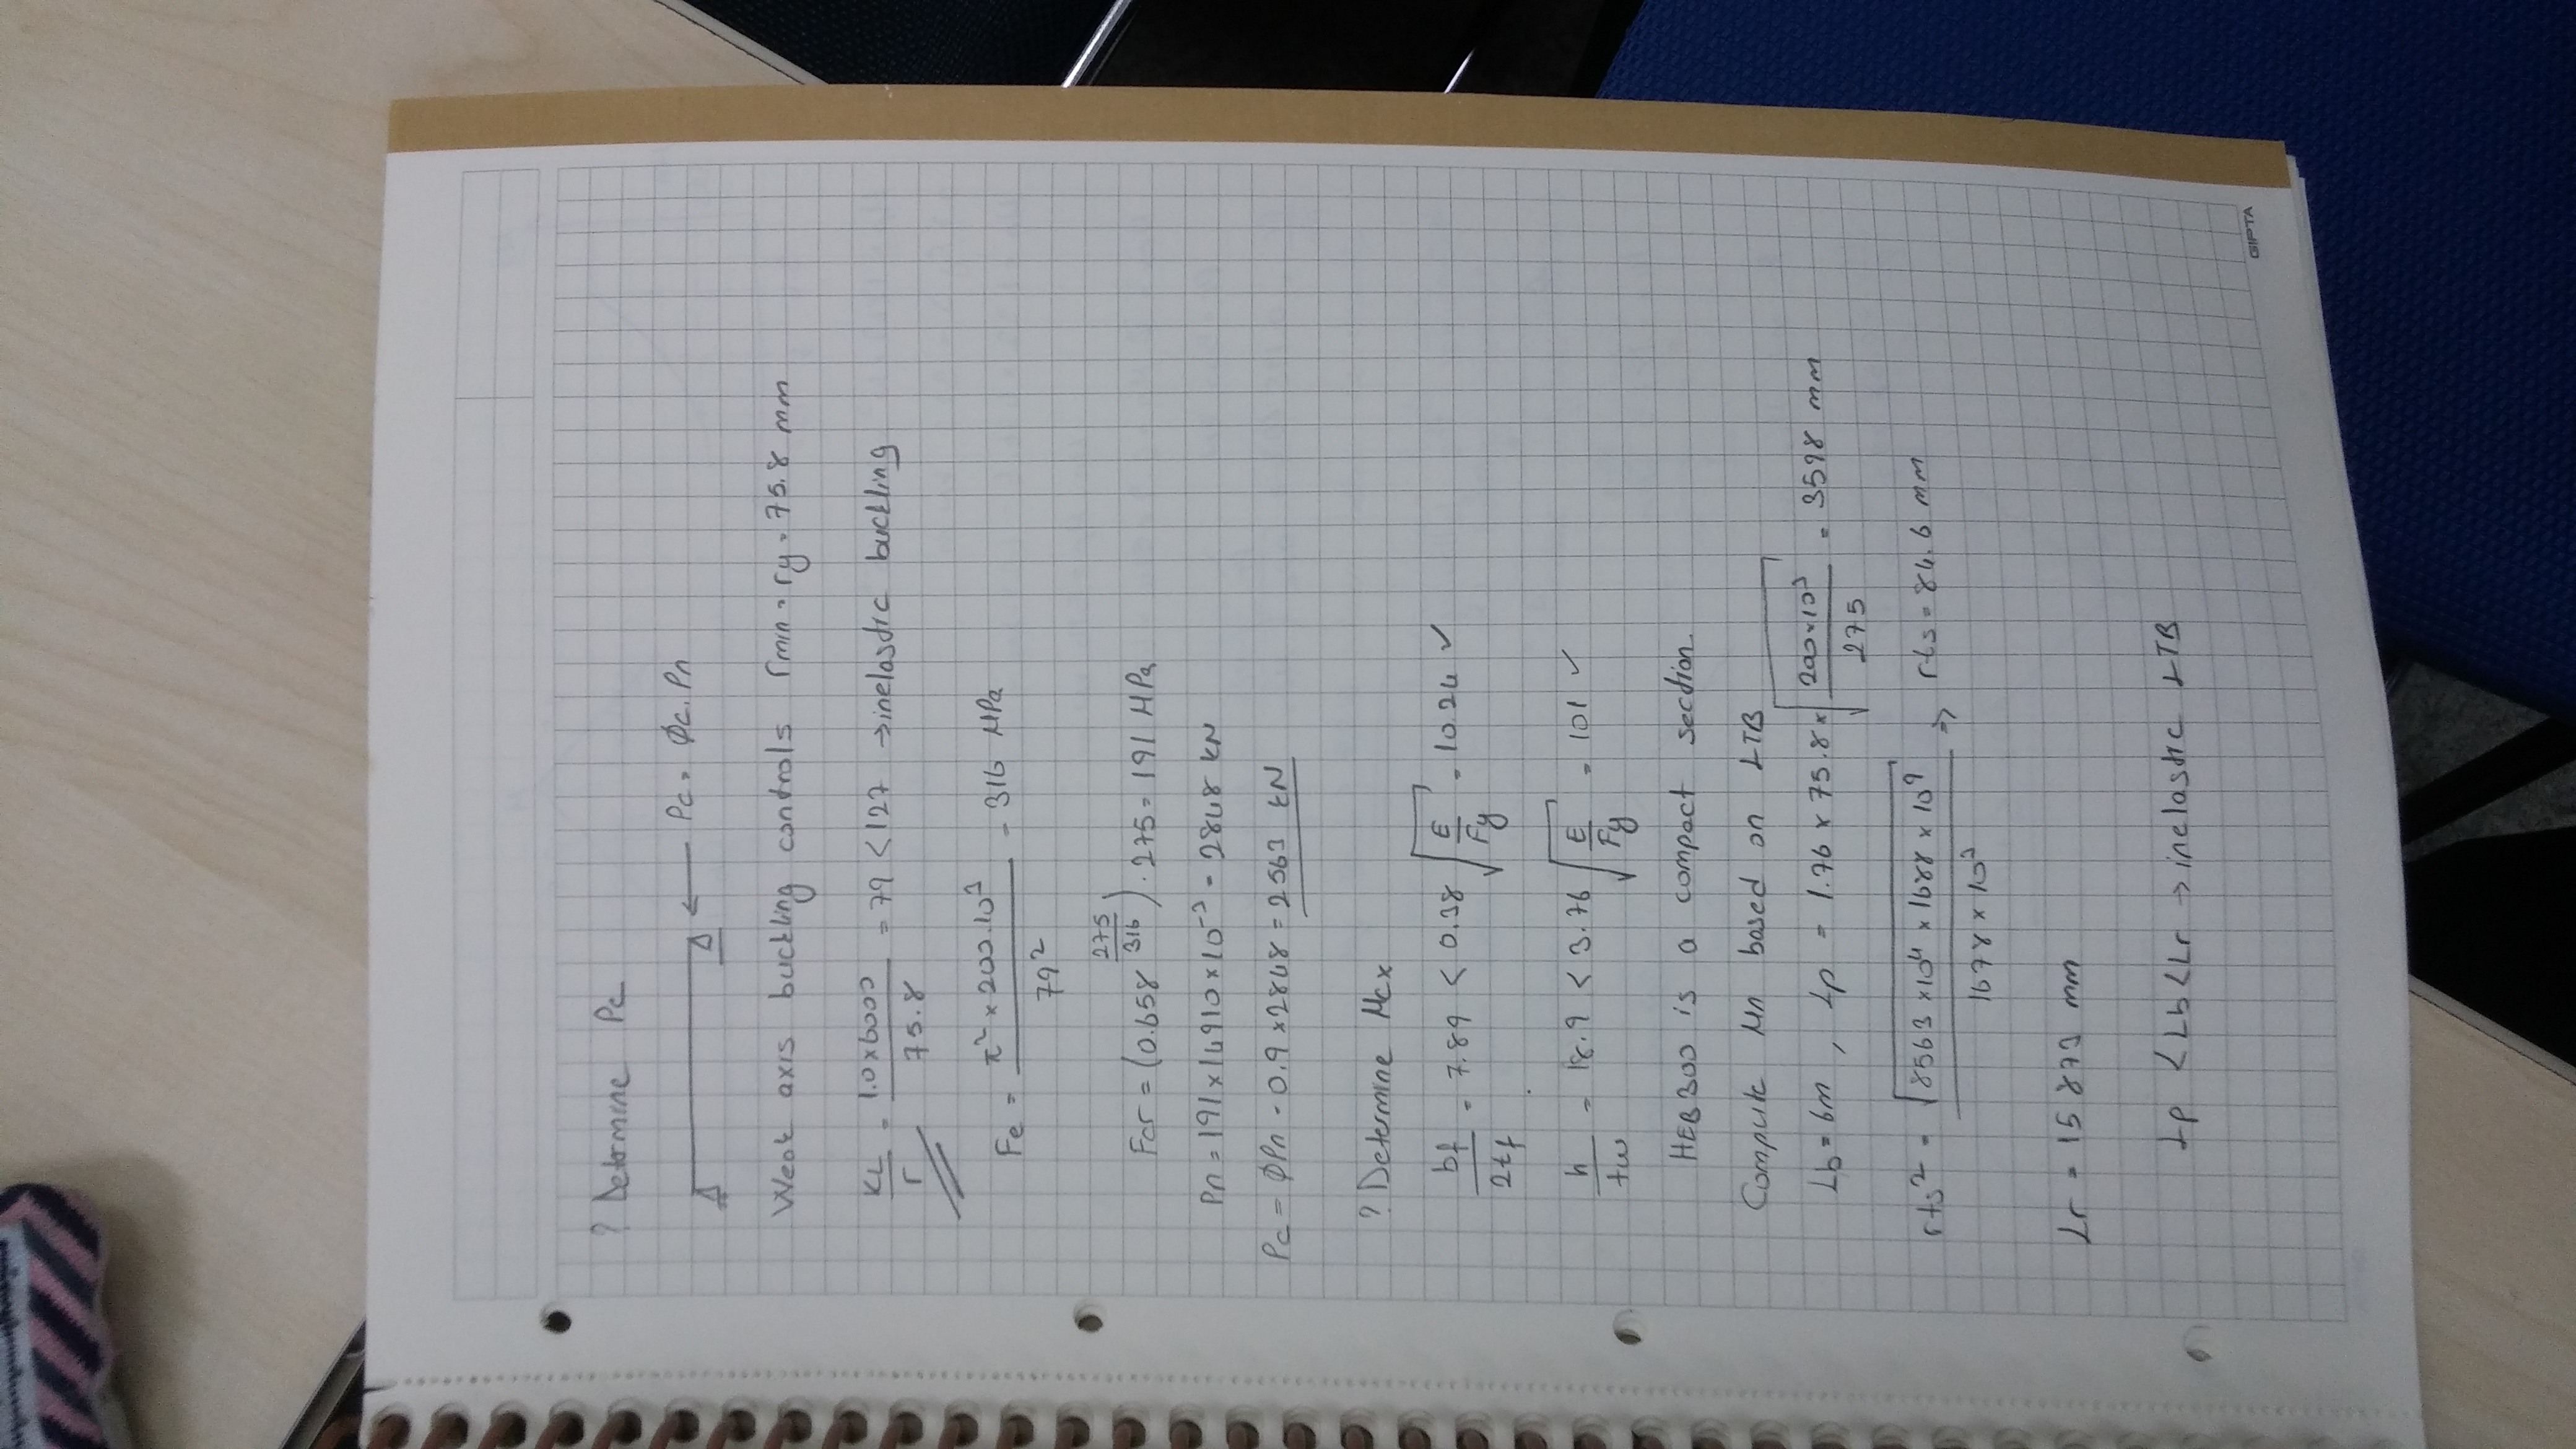 ? Determine Pc
Pc = ϕc.Pn
Weak axis buckling controls rmin = ry = 75.8 mm
KL/r = 1.0×6000/75.8 = 79 < 127 → inelastic buckling
Fe = π² × 200.10³/79² = 316 MPa
Fcr = (0.658^(275/316)) . 275 = 191 MPa
Pn = 191×14910×10⁻³ = 2848 kN
Pc = ϕPn = 0.9×2848 = 2563 kN
? Determine Mcx
bf/2tf = 7.89 < 0.38 √(E/Fy) = 10.24 ✓
h/tw = 18.9 < 3.76 √(E/Fy) = 101 ✓
HEB300 is a compact section.
Compute Mn based on LTB
Lb = 6m , Lp = 1.76 × 75.8 × √(200×10³/275) = 3598 mm
rts² = √(8563 ×10⁴ × 1688 × 10⁹)/1678 × 10³ => rts = 84.6 mm
Lr = 15873 mm
Lp < Lb < Lr → inelastic LTB
GIPTA